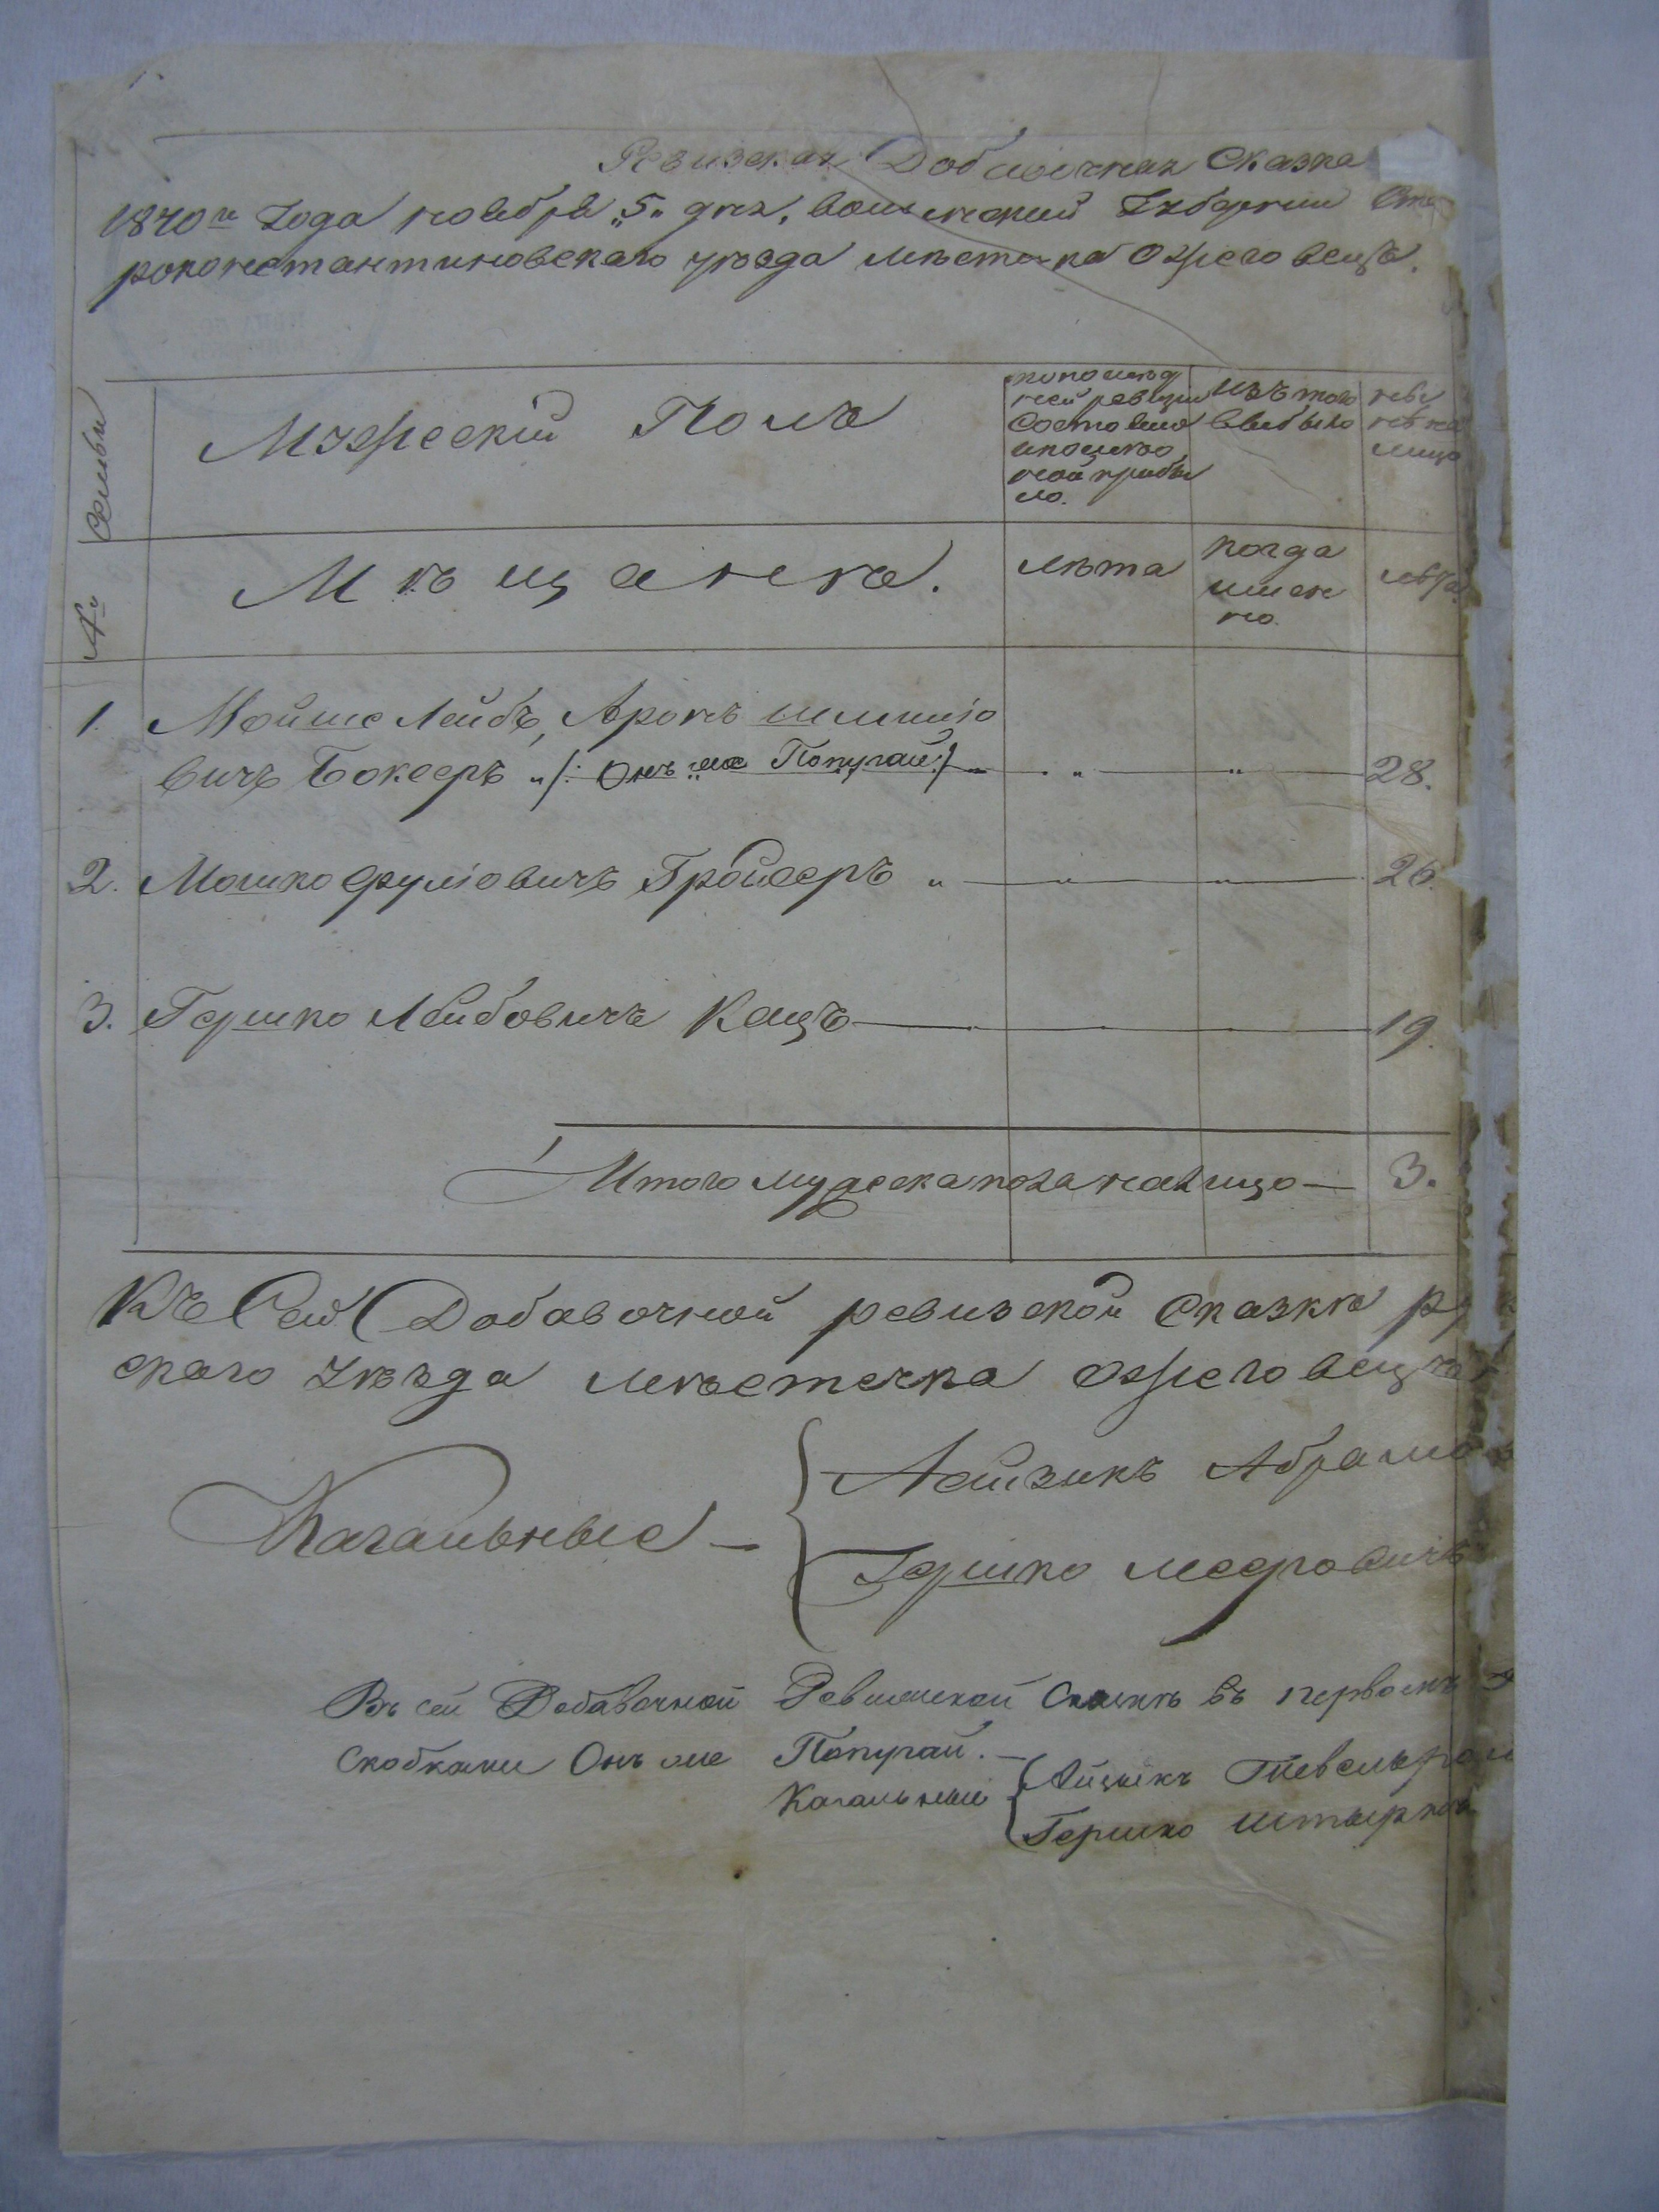 Ревизская Добавочная Сказка
1840го Года ноября „5„ дня, волынской Губернии Ста
роконстантиновскаго уѣзда мѣстечка Ожеговецъ.
№ семьи
Мужескій Полъ
по послѣд
ней ревизіи
Состояло
и после
оной прибы
ло.
Изъ того
выбыло
ныне
на
лицо
Мѣщане.
лѣта
когда
имен
но.
лѣта.
1. Мойше Лейбъ, Аронъ шлиміо
вичъ Боксеръ „/: Онъ же Попугай:/ 28.
2. Мошко Фруміовичъ Гройсеръ „ 26.
3. Гершко Лейбовичъ Кацъ 19.
Итого мужеска пола на лицо — 3.
Къ Сей Добавочной ревизской Сказкѣ ру
скаго уѣзда мѣстечка Ожеговецъ
Кагальные —
Айзикъ Абрамов
Гершко мееровичъ
Въ сей Добавочной Ревизской Сказкѣ въ первомъ
Скобками Онъ же Попугай. —
Кагальные
Айзикъ
Гершко